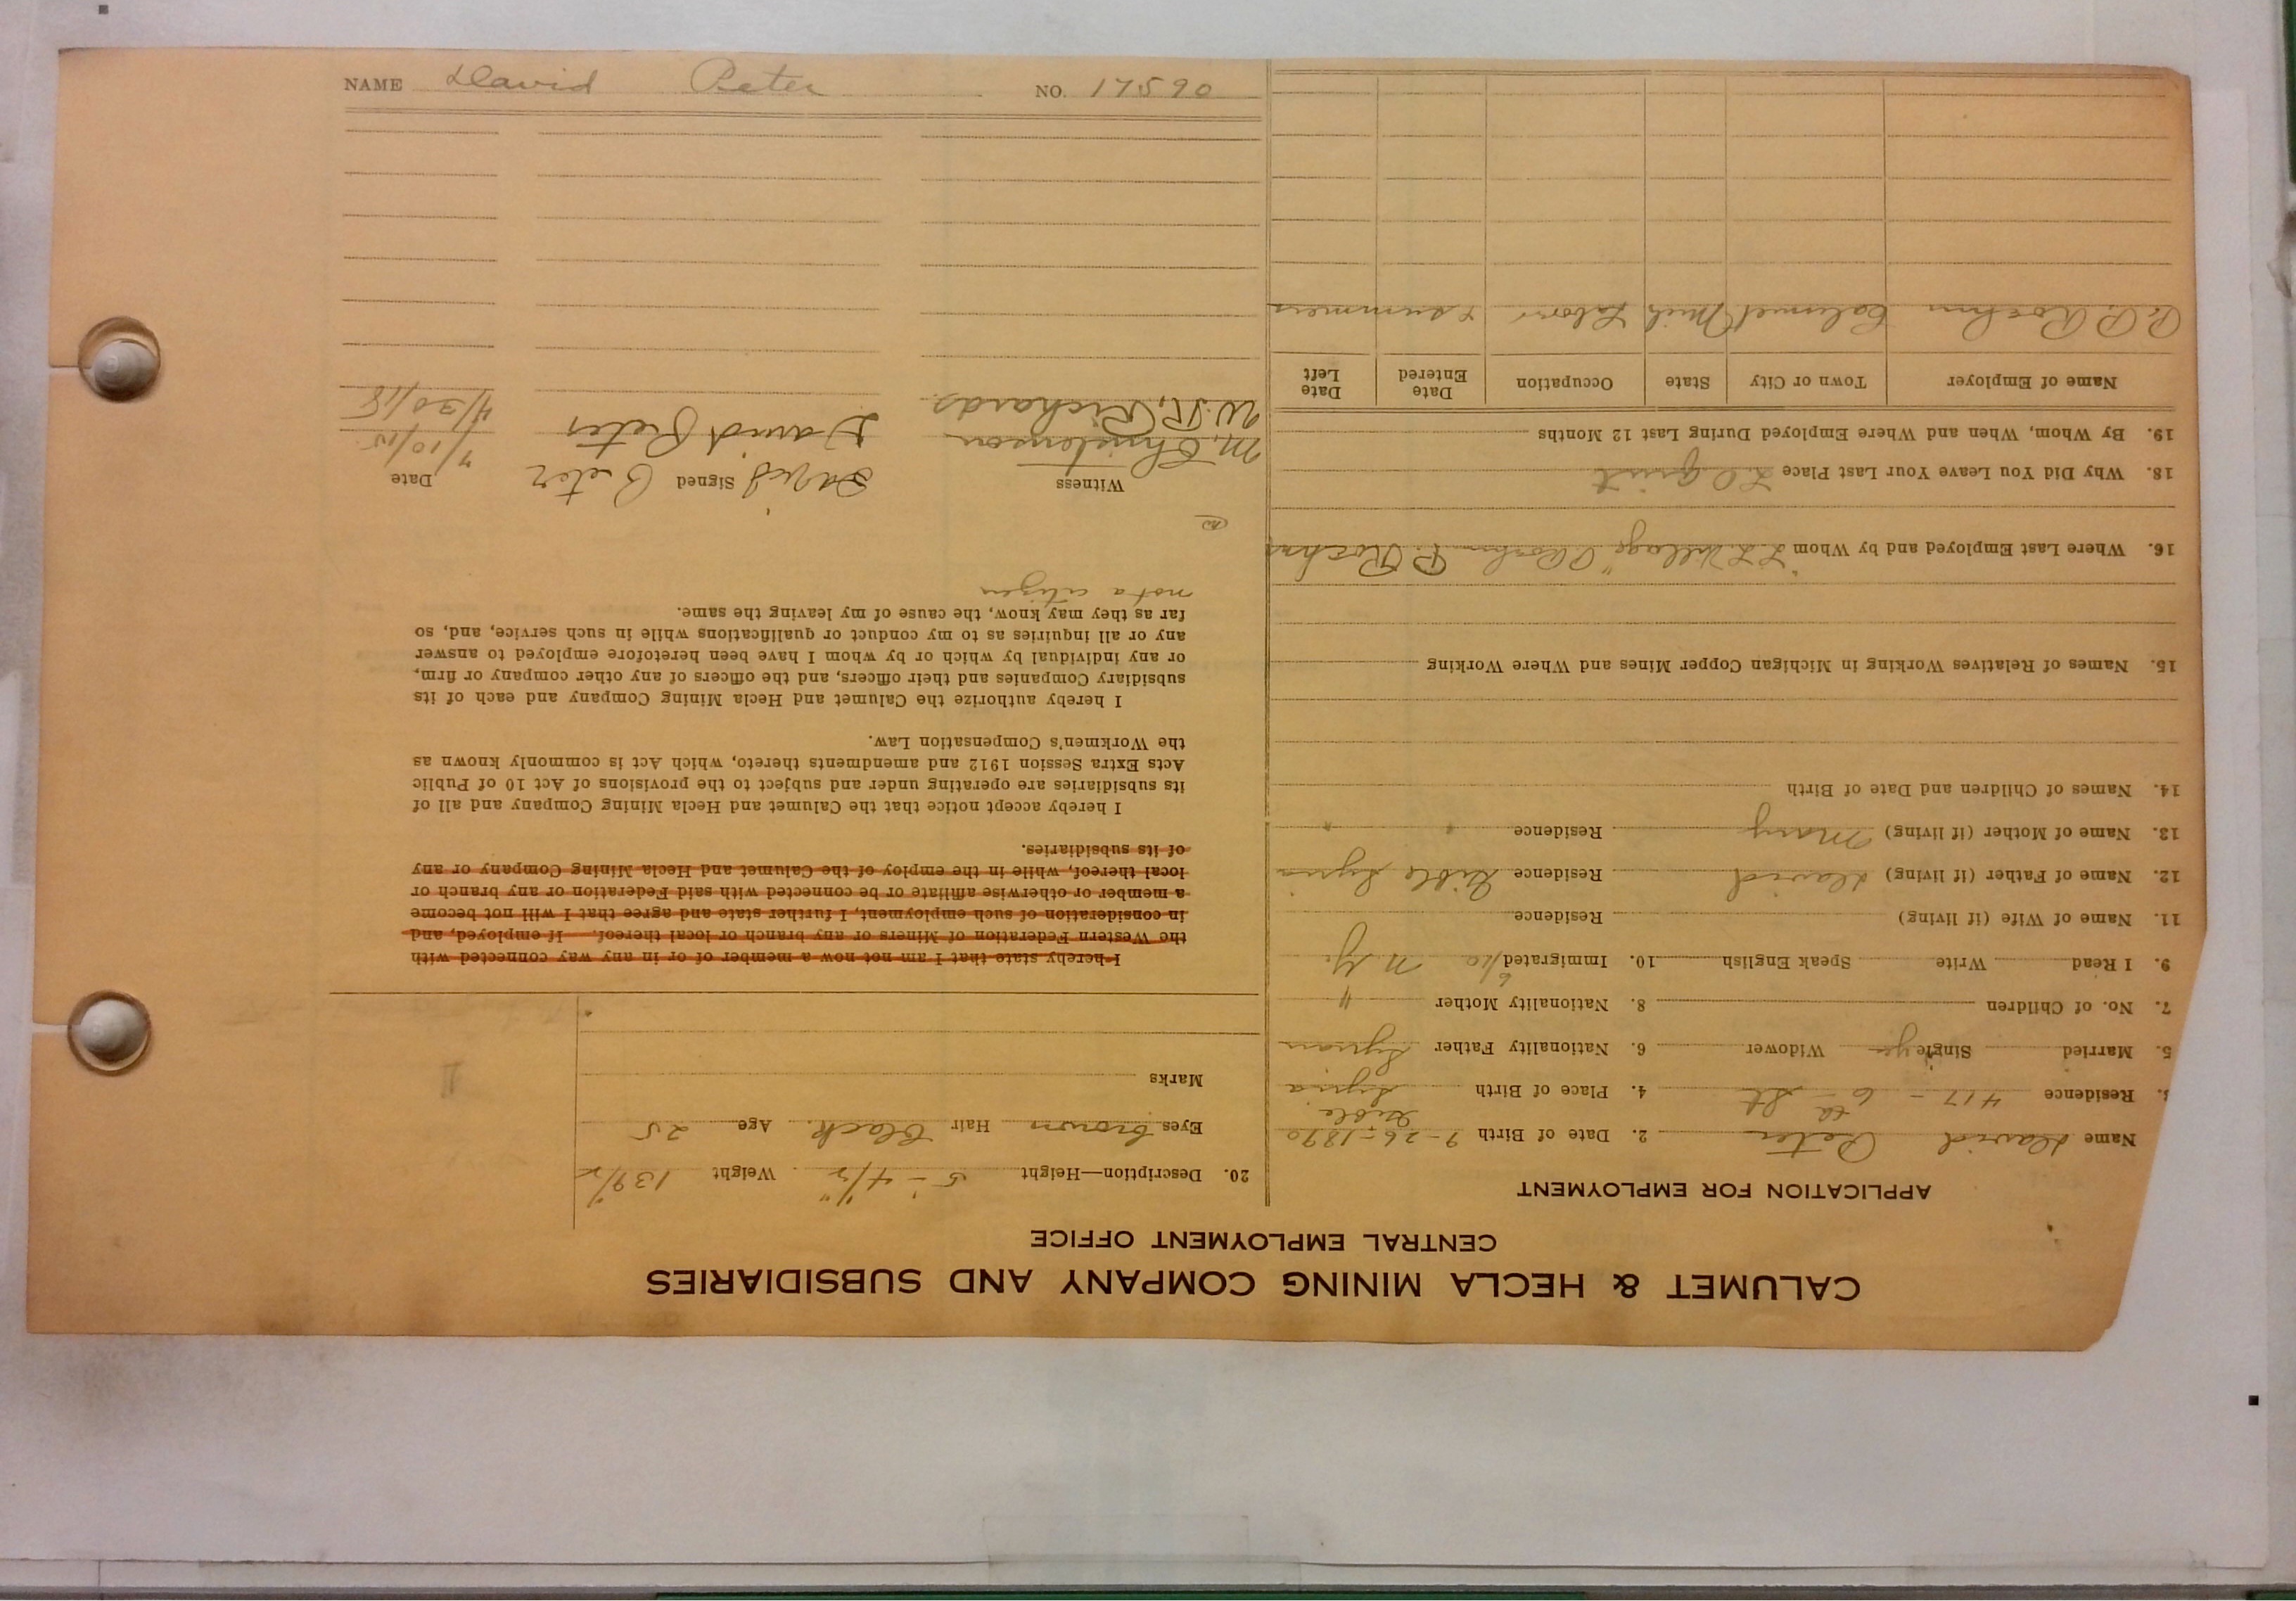 NAME David Peter NO. 17590
CALUMET & HECLA MINING COMPANY AND SUBSIDIARIES
CENTRAL EMPLOYMENT OFFICE
APPLICATION FOR EMPLOYMENT
Name David Peter 2. Date of Birth 9-26-1890
Residence 417-6th St 4. Place of Birth Syria
5. Married Single yes Widower 6. Nationality Father Syrian
7. No. of Children 8. Nationality Mother "
9. I Read Write Speak English 10. Immigrated 6/10 N.Y.
11. Name of Wife (if living) Residence
12. Name of Father (if living) David Residence Syria
13. Name of Mother (if living) Mary Residence " "
14. Names of Children and Date of Birth
15. Names of Relatives Working in Michigan Copper Mines and Where Working
16. Where Last Employed and by Whom "L.L. Village" P.
18. Why Did You Leave Your Last Place
19. By Whom, When and Where Employed During Last 12 Months
Name of Employer Town or City State Occupation Date Entered Date Left
Calumet Mich Labor summers
20. Description—Height 5'-4 1/2" Weight 139 1/2
Eyes brown Hair Black Age 25
Marks
I hereby state that I am not now a member of or in any way connected with
the Western Federation of Miners or any branch or local thereof. If employed, and
in consideration of such employment, I further state and agree that I will not become
a member or otherwise affiliate or be connected with said Federation or any branch or
local thereof, while in the employ of the Calumet and Hecla Mining Company or any
of its subsidiaries.
I hereby accept notice that the Calumet and Hecla Mining Company and all of
its subsidiaries are operating under and subject to the provisions of Act 10 of Public
Acts Extra Session 1912 and amendments thereto, which Act is commonly known as
the Workmen's Compensation Law.
I hereby authorize the Calumet and Hecla Mining Company and each of its
subsidiary Companies and their officers, and the officers of any other company or firm,
or any individual by which or by whom I have been heretofore employed to answer
any or all inquiries as to my conduct or qualifications while in such service, and, so
far as they may know, the cause of my leaving the same.
not a citizen
Witness Signed Date
M. Christenson David Peter 7/10/15
W.R. Richards David Peter 4/30/18